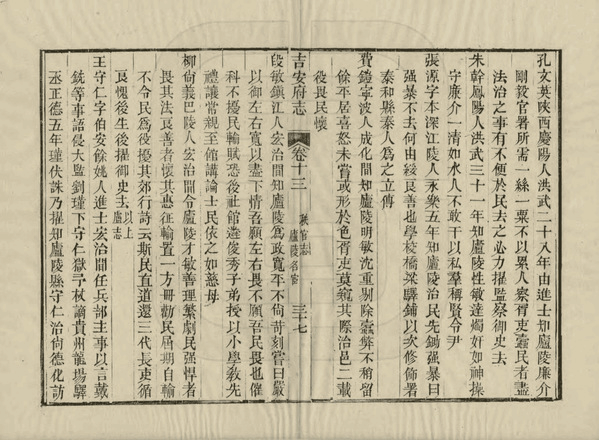 孔文英陝西慶陽人洪武二十八年由進士知廬陵廉介
剛毅官署所需一絲一粟不以累人察胥吏蠹民者盡
法治之事有不便於民去之必力擢監察御史去
朱幹鳳陽人洪武三十一年知廬陵性敏達燭奸如神操
守廉介一清如水人不敢干以私羣稱賢令尹
張源字本深江陵人永樂五年知廬陵治民先鋤强暴曰
强暴不去何由綏良善也學校橋梁驛鋪以次修飾署
泰和縣泰人爲之立傳
費鐘寧波人成化間知廬陵明敏沈重剔除蠹弊不稍留
餘平居喜怒未嘗或形於色胥吏莫窺其際治邑二載
役畏民懷
吉安府志
卷十三
秩官志
廬陵名宦
三十七
段敏鎮江人宏治間知廬陵爲政寬平不尙苛刻嘗曰嚴
以御左右寬以盡下情吾願左右畏不願吾民畏也催
科不擾民輸賦恐後社館造俊秀子弟授以小學敎先
禮讓常親至館講論士民依之如慈母
柳尙義巴陵人宏治間令廬陵才敏善理繁劇民强悍者
畏其法良善者懷其惠征輸置一方冊勸民屆期自輸
不令民爲役擾其郊行詩云斯民直道還三代長吏循
良愧後生後擢御史去以上盧志
王守仁字伯安餘姚人進士宏治間任兵部主事以言戴
銑等事語侵大監劉瑾下守仁獄予杖謫貴州龍塲驛
丞正德五年瑾伏誅乃擢知廬陵縣守仁治尙德化訪